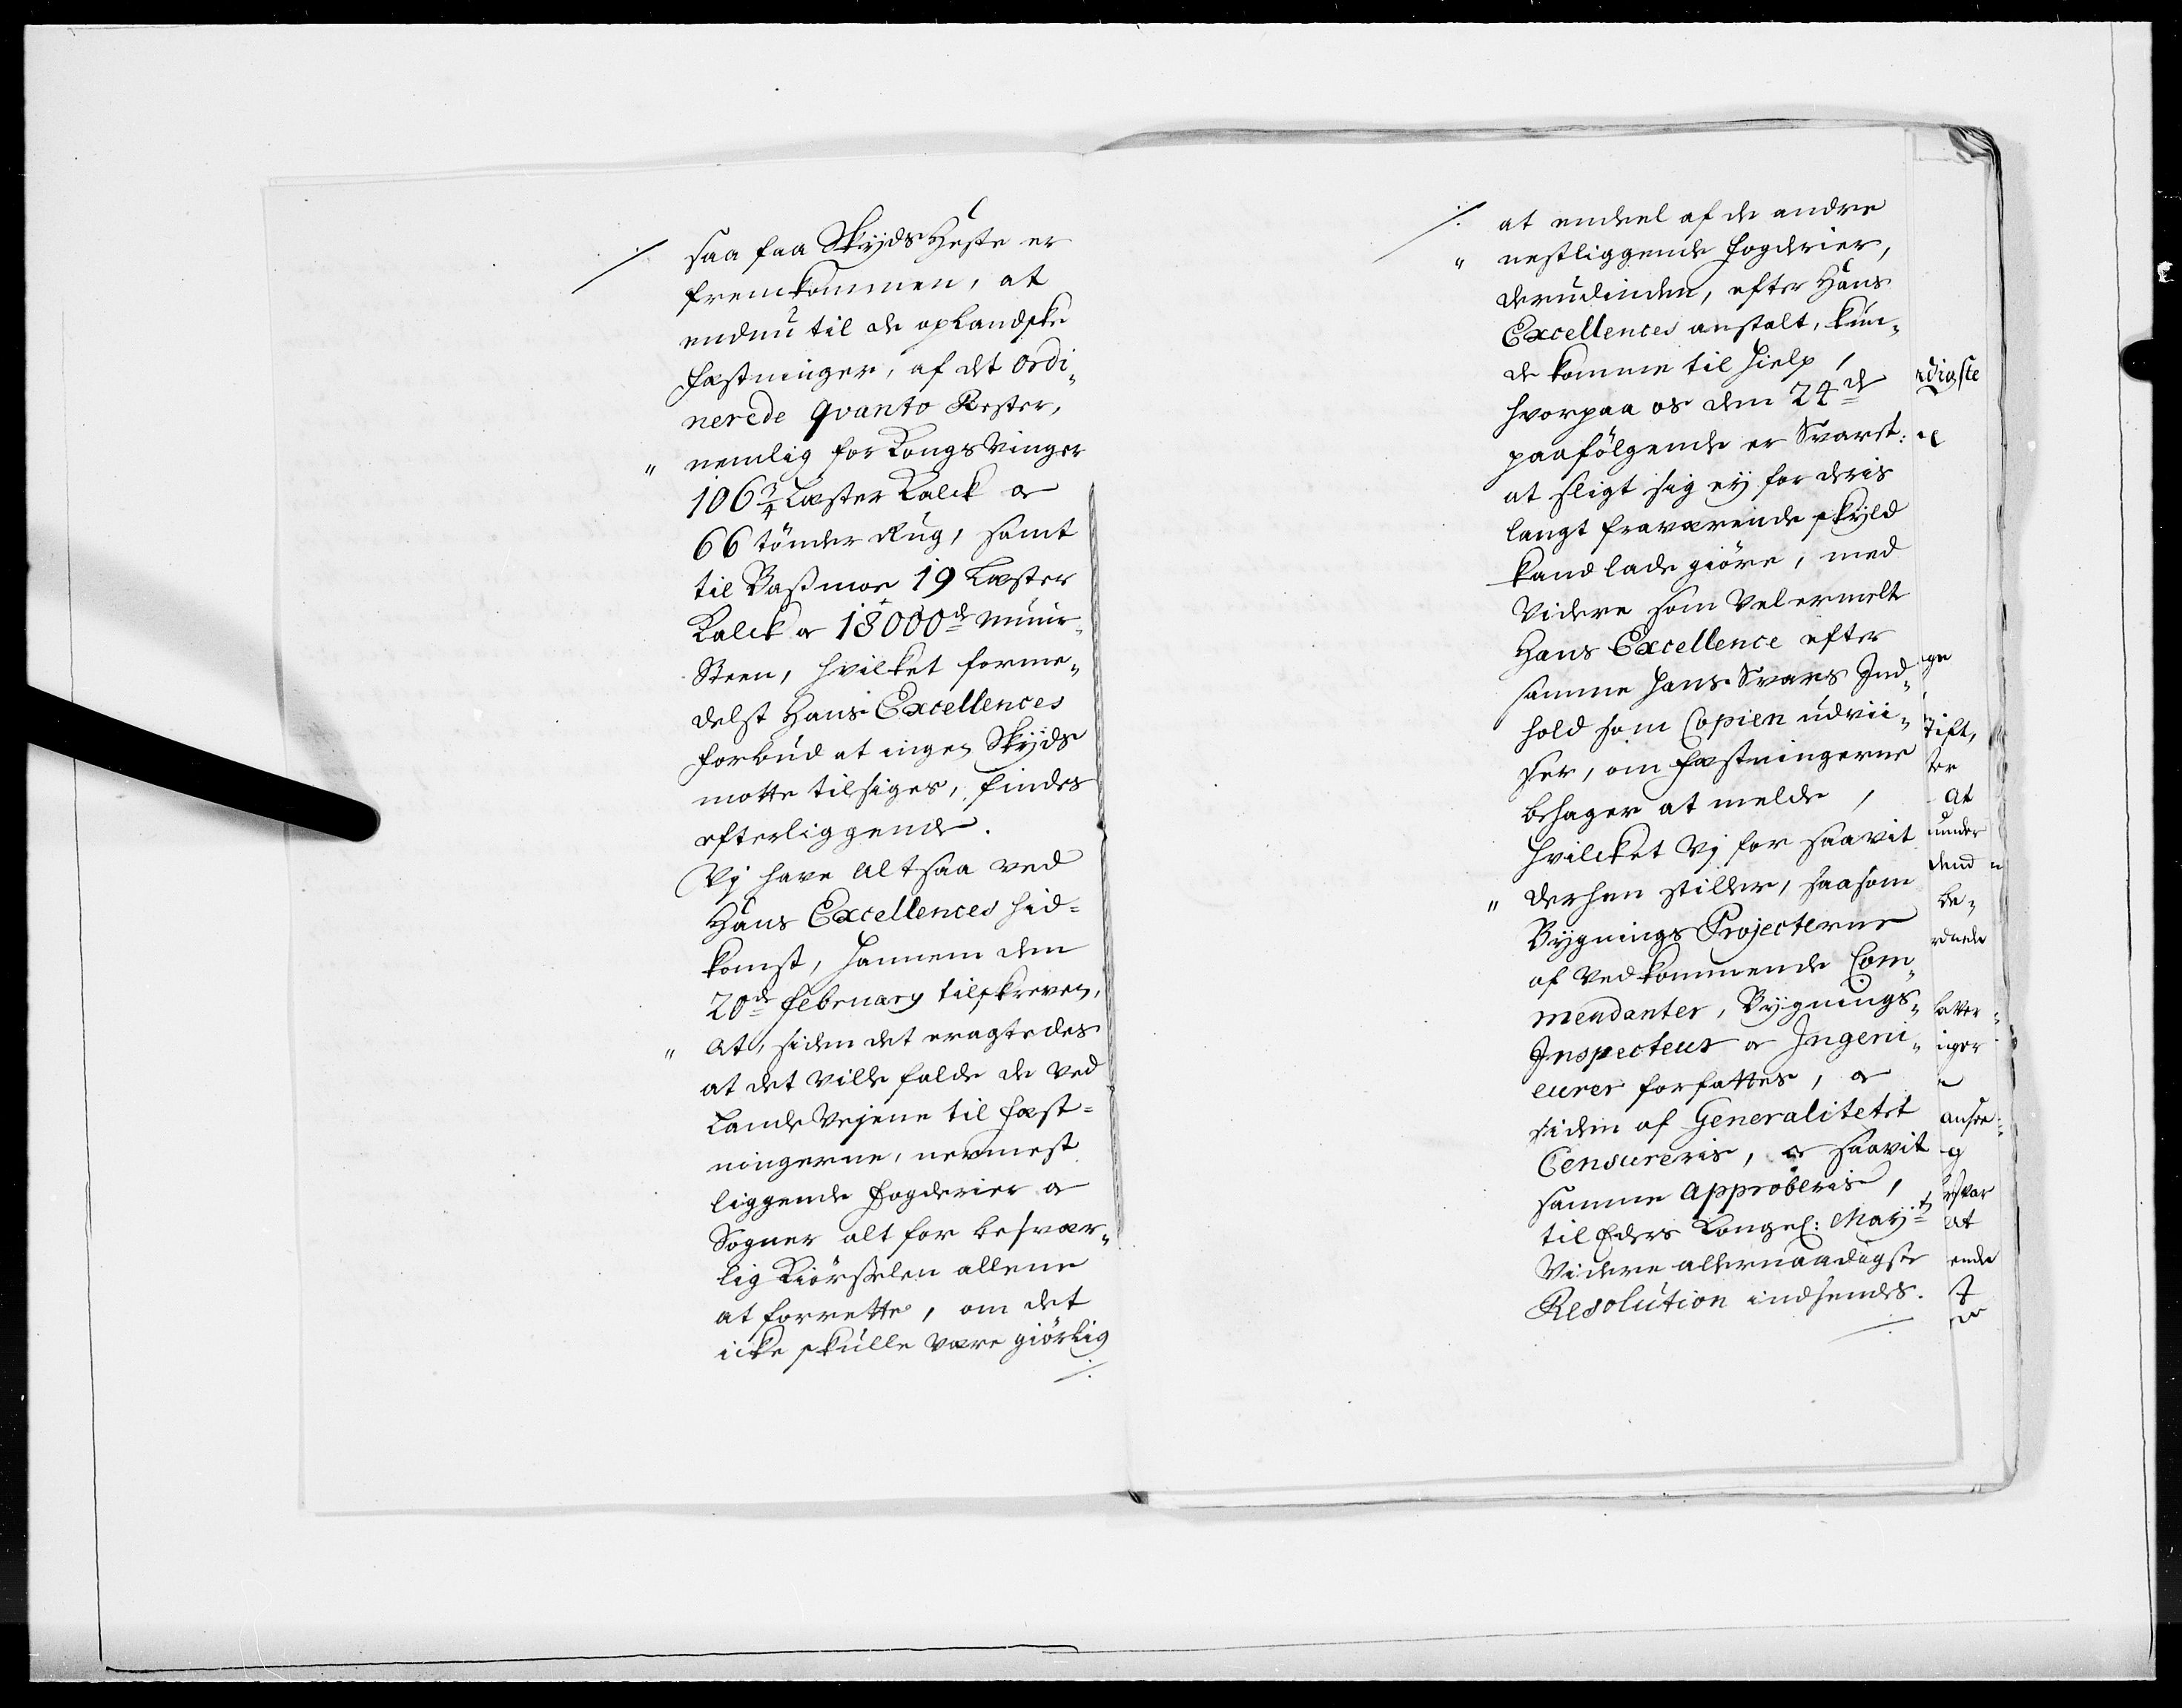 ./. saa faa Skyds Heste er
fremkommen, at
endnu til de oplandske
Fæstninger, af det ordi„
nerede qvanto Rester,
„ nemlig for Kongs Vinger
106 3/4 Læster Kalck og
66 tönder Rug, samt
til Basmoe 19 Læster
Kalck og 18000de Muur„
Steen, hvilket forme„
delst Hans Excellences
forbud at ingen Skyds
motte tilsiges, findes
efterliggende.
Vj have altsaa ved
Hans Excellences hid=
komst, hannem den
20de February tilskreven,
„ At, siden det eragtedes
at det ville falde de ved
Lande Vejene til Fæst=
ningerne, nermest
liggende Fogderier og
Sogner alt for besvær„
lig Kiörselen allene
at forrette, om det
icke skulle være giörlig
./.
./. at endeel af de andre
„ nestliggende Fogderier,
derudinden, efter Hans
Excellences anstalt, kun„
de komme til hielp,
hvorpaa os den 24de
paafölgende er Svaret:
at sligt sig ey for deris
langt fraværende skyld
kand lade giöre, med
Videre som Velermelte
Hans Excellence efter
samme hans Svars Ind„
hold som Copien udvii„
ser, om Fæstningerne
behager at melde,
Hvilcket Vj for saavit
„ derhen stiller, saasom
Bygnings Projecterne
af Vedkommende Com„
mendanter, Bygnings„
Inspecteur og Ingeni„
eurer forfattes, og
siden af Generalitetet
Censureris, og saavit
samme approberis,
til Eders Kongel: May:t
Videre allernaadigste
Resolution indsendes.
./.
rdigste
ge
tift,
ter
At
under
dend
be„
iger
ansee„
g
At
ende